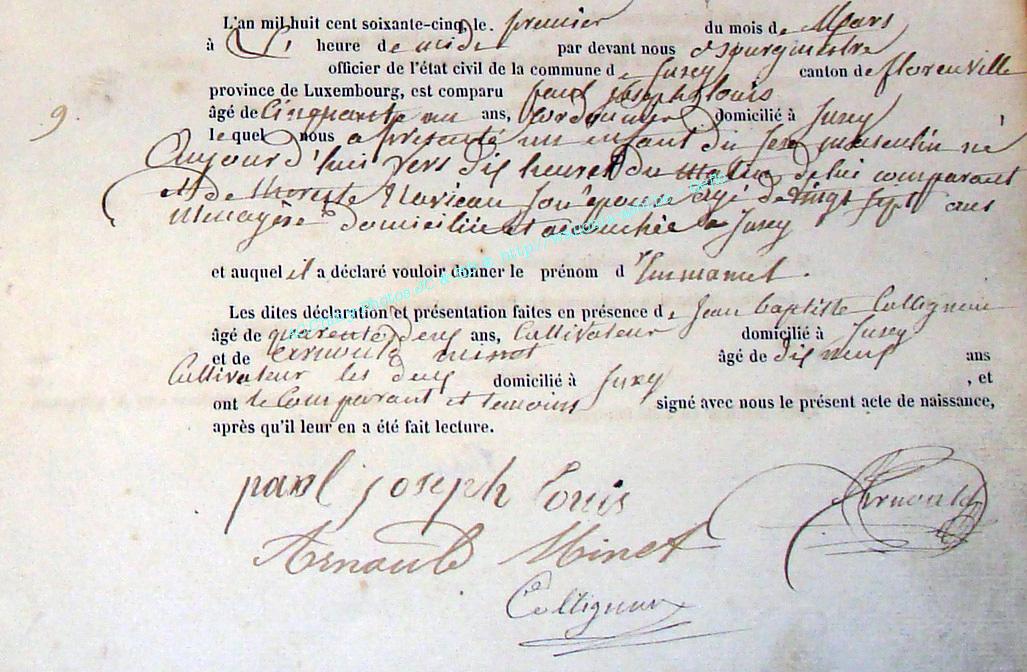 L'an mil huit cent soixante-cinq, le premier du mois de Mars
à heure de midi par devant nous Bourgmestre
officier de l'état civil de la commune de Suxey canton de florenville
province de Luxembourg, est comparu paul joseph louis
9 âgé de Cinquante un ans, Cordonnier domicilié à Suxey
lequel nous a présenté un enfant du Sexe masculin né
Aujourd'hui vers dix heures du Matin de lui comparant
et de Son épouse agé de vingt Sept ans
Menagère domiciliée et accouchée a Suxey
et auquel il a déclaré vouloir donner le prénom d
Les dites déclaration et présentation faites en présence de Jean baptiste Collignon
âgé de quarente deux ans, Cultivateur domicilié à Suxey
et de âgé de dix neuf ans
Cultivateur les deux domicilié à Suxey , et
ont le Comparant et temoins signé avec nous le présent acte de naissance,
après qu'il leur en a été fait lecture.
paul joseph louis Arnould
Arnould Minet
Collignon